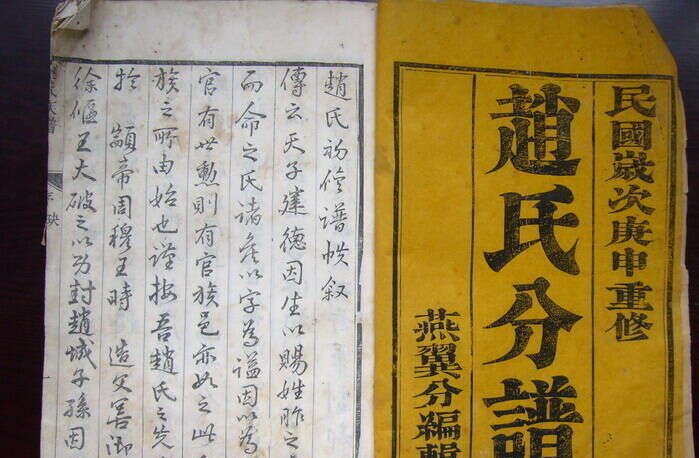 民國歲次庚申重修
趙氏分譜
燕翼分編輯
趙氏初修譜帙叙
傳云天子建德因生以賜姓胙之
而命之氏諸侯以字為謚因以為
官有世勲則有官族邑亦如之此
族之所由始也謹按吾趙氏之先
於 顓帝周穆王時 造父善御
徐偃王大破之以功封趙城子孫因